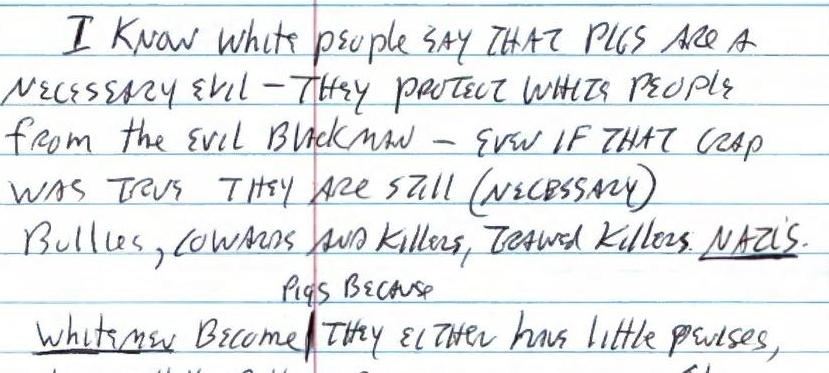 I KNOW White people SAY THAT PIGS ARE A
NECESSARY EVIL – THEY PROTECT WHITE PEOPLE
from the EVIL BlACKMAN – EVEN IF THAT CRAP
WAS TRUE THEY ARE STILL (NECESSARY)
Bullies, COWARDS AND Killers, TRAINED Killers. NAZI'S.
PIGS BECAUSE
Whitemen Become THEY EITHER have little penises,